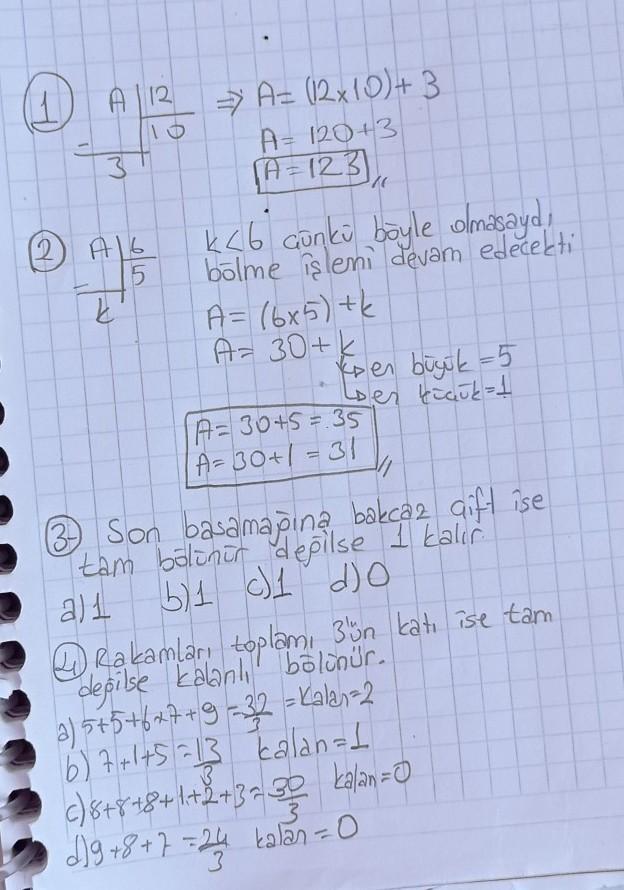 1 A | 12 ⇒ A = (12x10) + 3
10
3
A = 120+3
A = 123
2 A | 6 k<6 çünkü böyle olmasaydı
5
k
bölme işlemi devam edecekti
A = (6x5) + k
A = 30 + k
en büyük = 5
en küçük = 1
A = 30+5 = 35
A = 30+1 = 31
3- Son basamağına bakcaz çift ise
tam bölünür değilse 1 kalır.
a) 1 b) 1 c) 1 d) 0
4 Rakamları toplamı 3'ün katı ise tam
değilse kalanlı bölünür.
a) 5+5+6+7+9 = 32/3 = kalan = 2
b) 7+1+5 = 13/3 kalan = 1
c) 8+8+8+1+2+3 = 30/3 kalan = 0
d) 9+8+7 = 24/3 kalan = 0